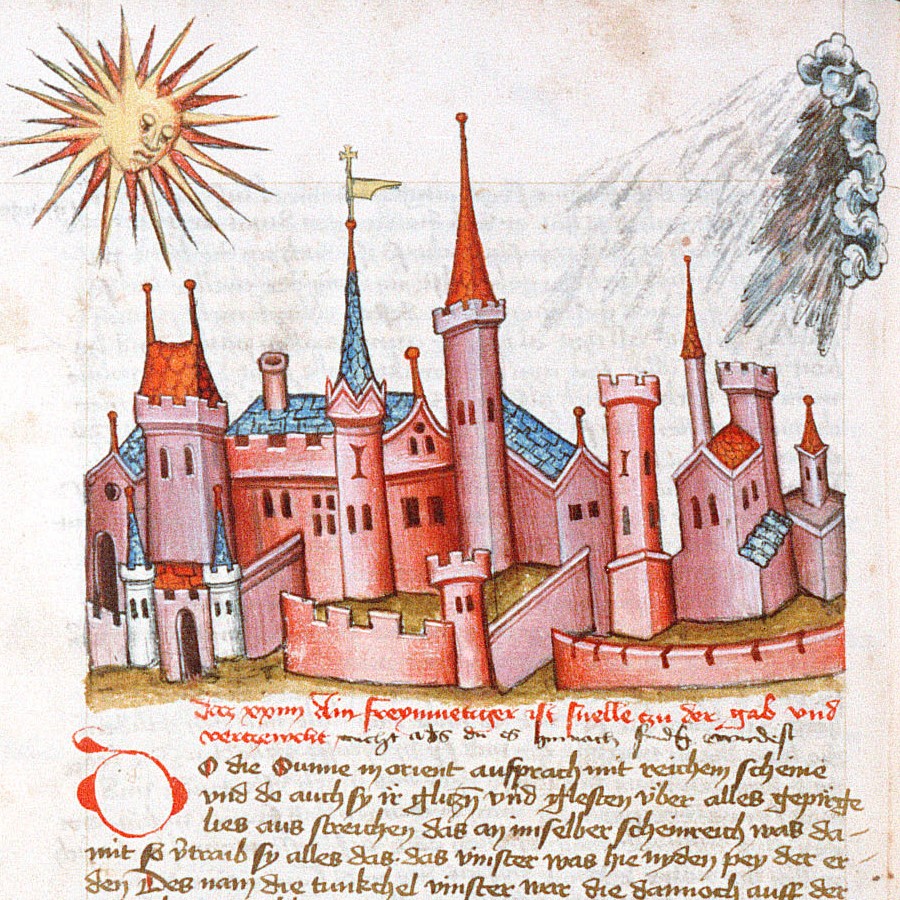 Das xxiiii Ain freymuetiger ist snelle tzu der gab vnd
vertzewcht nicht als du es hernach findest
O die Sunne in orient aufprach mit reichem scheine
vnd do auch sy ir glitzn̄ vnd glesten v̈ber alles gepirge
lies aus streichen das an im selber scheinreich was da-
mit so v̈traib sy alles das. das vinster was hie nyden pey der er-
den Des nam die tunkchel vinster war die dannoch auff der